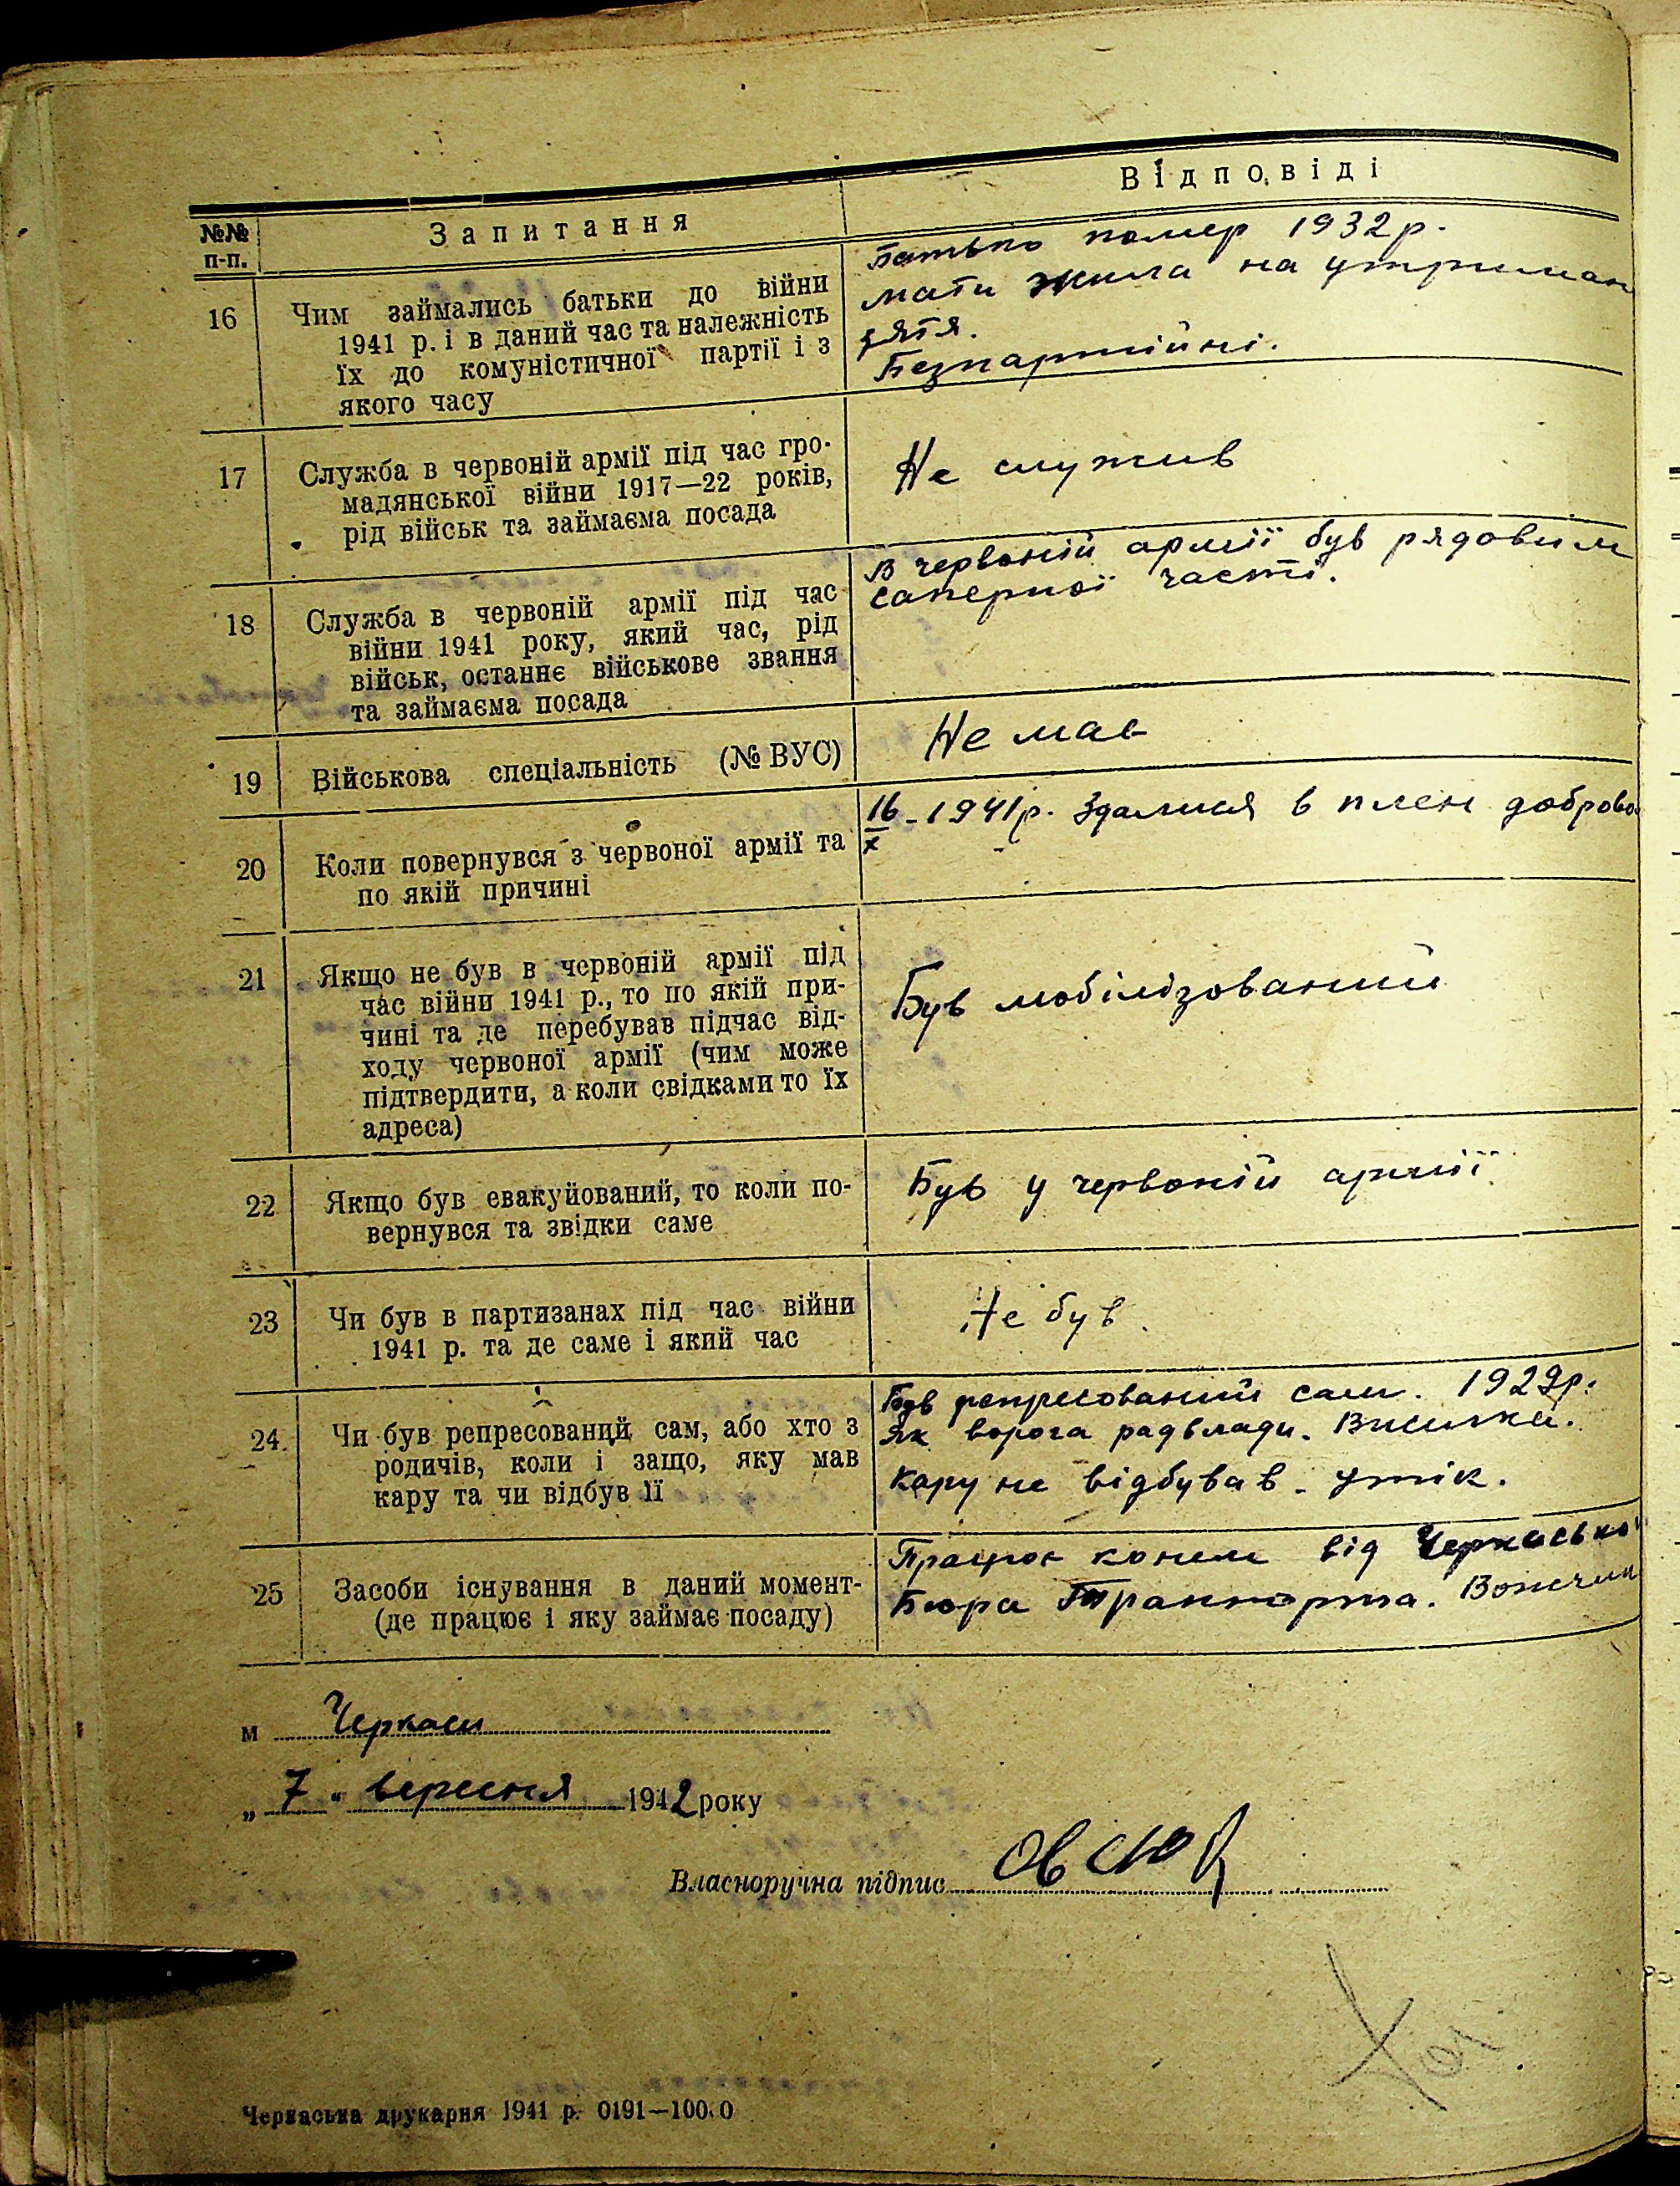 Відповіді
№№ п-п. Запитання
Батько помер 1932 р.
мати жила на утриман
зятя.
Безпартійні.
16 Чим займались батьки до війни
1941 р. і в даний час та належність
їх до комуністичної партії і з
якого часу
17 Служба в червоній армії під час гро-
мадянської війни 1917—22 років,
рід військ та займаєма посада
Не служив
18 Служба в червоній армії під час
війни 1941 року, який час, рід
військ, останнє військове звання
та займаєма посада
В червоній армії був рядовим
саперної часті.
19 Військова спеціальність (№ ВУС)
Не мав
20 Коли повернувся з червоної армії та
по якій причині
16/X - 1941 р. Здалися в плен доброво
21 Якщо не був в червоній армії під
час війни 1941 р., то по якій при-
чині та де перебував підчас від-
ходу червоної армії (чим може
підтвердити, а коли свідками то їх
адреса)
Був мобілізований
22 Якщо був евакуйований, то коли по-
вернувся та звідки саме
Був у червоній армії
23 Чи був в партизанах під час війни
1941 р. та де саме і який час
Не був
24 Чи був репресований сам, або хто з
родичів, коли і защо, яку мав
кару та чи відбув її
Був репресований сам. 1929 р.
як ворога радвлади. Висилка.
кару не відбував. утік.
25 Засоби існування в даний момент-
(де працює і яку займає посаду)
Працює конем від Черкасько
Бюра Транспорта. Возчик
м Черкаси
„ 7 " вересня 1942 року
Власноручна підпис Овсюк
Черкаська друкарня 1941 р. 0191—100.0